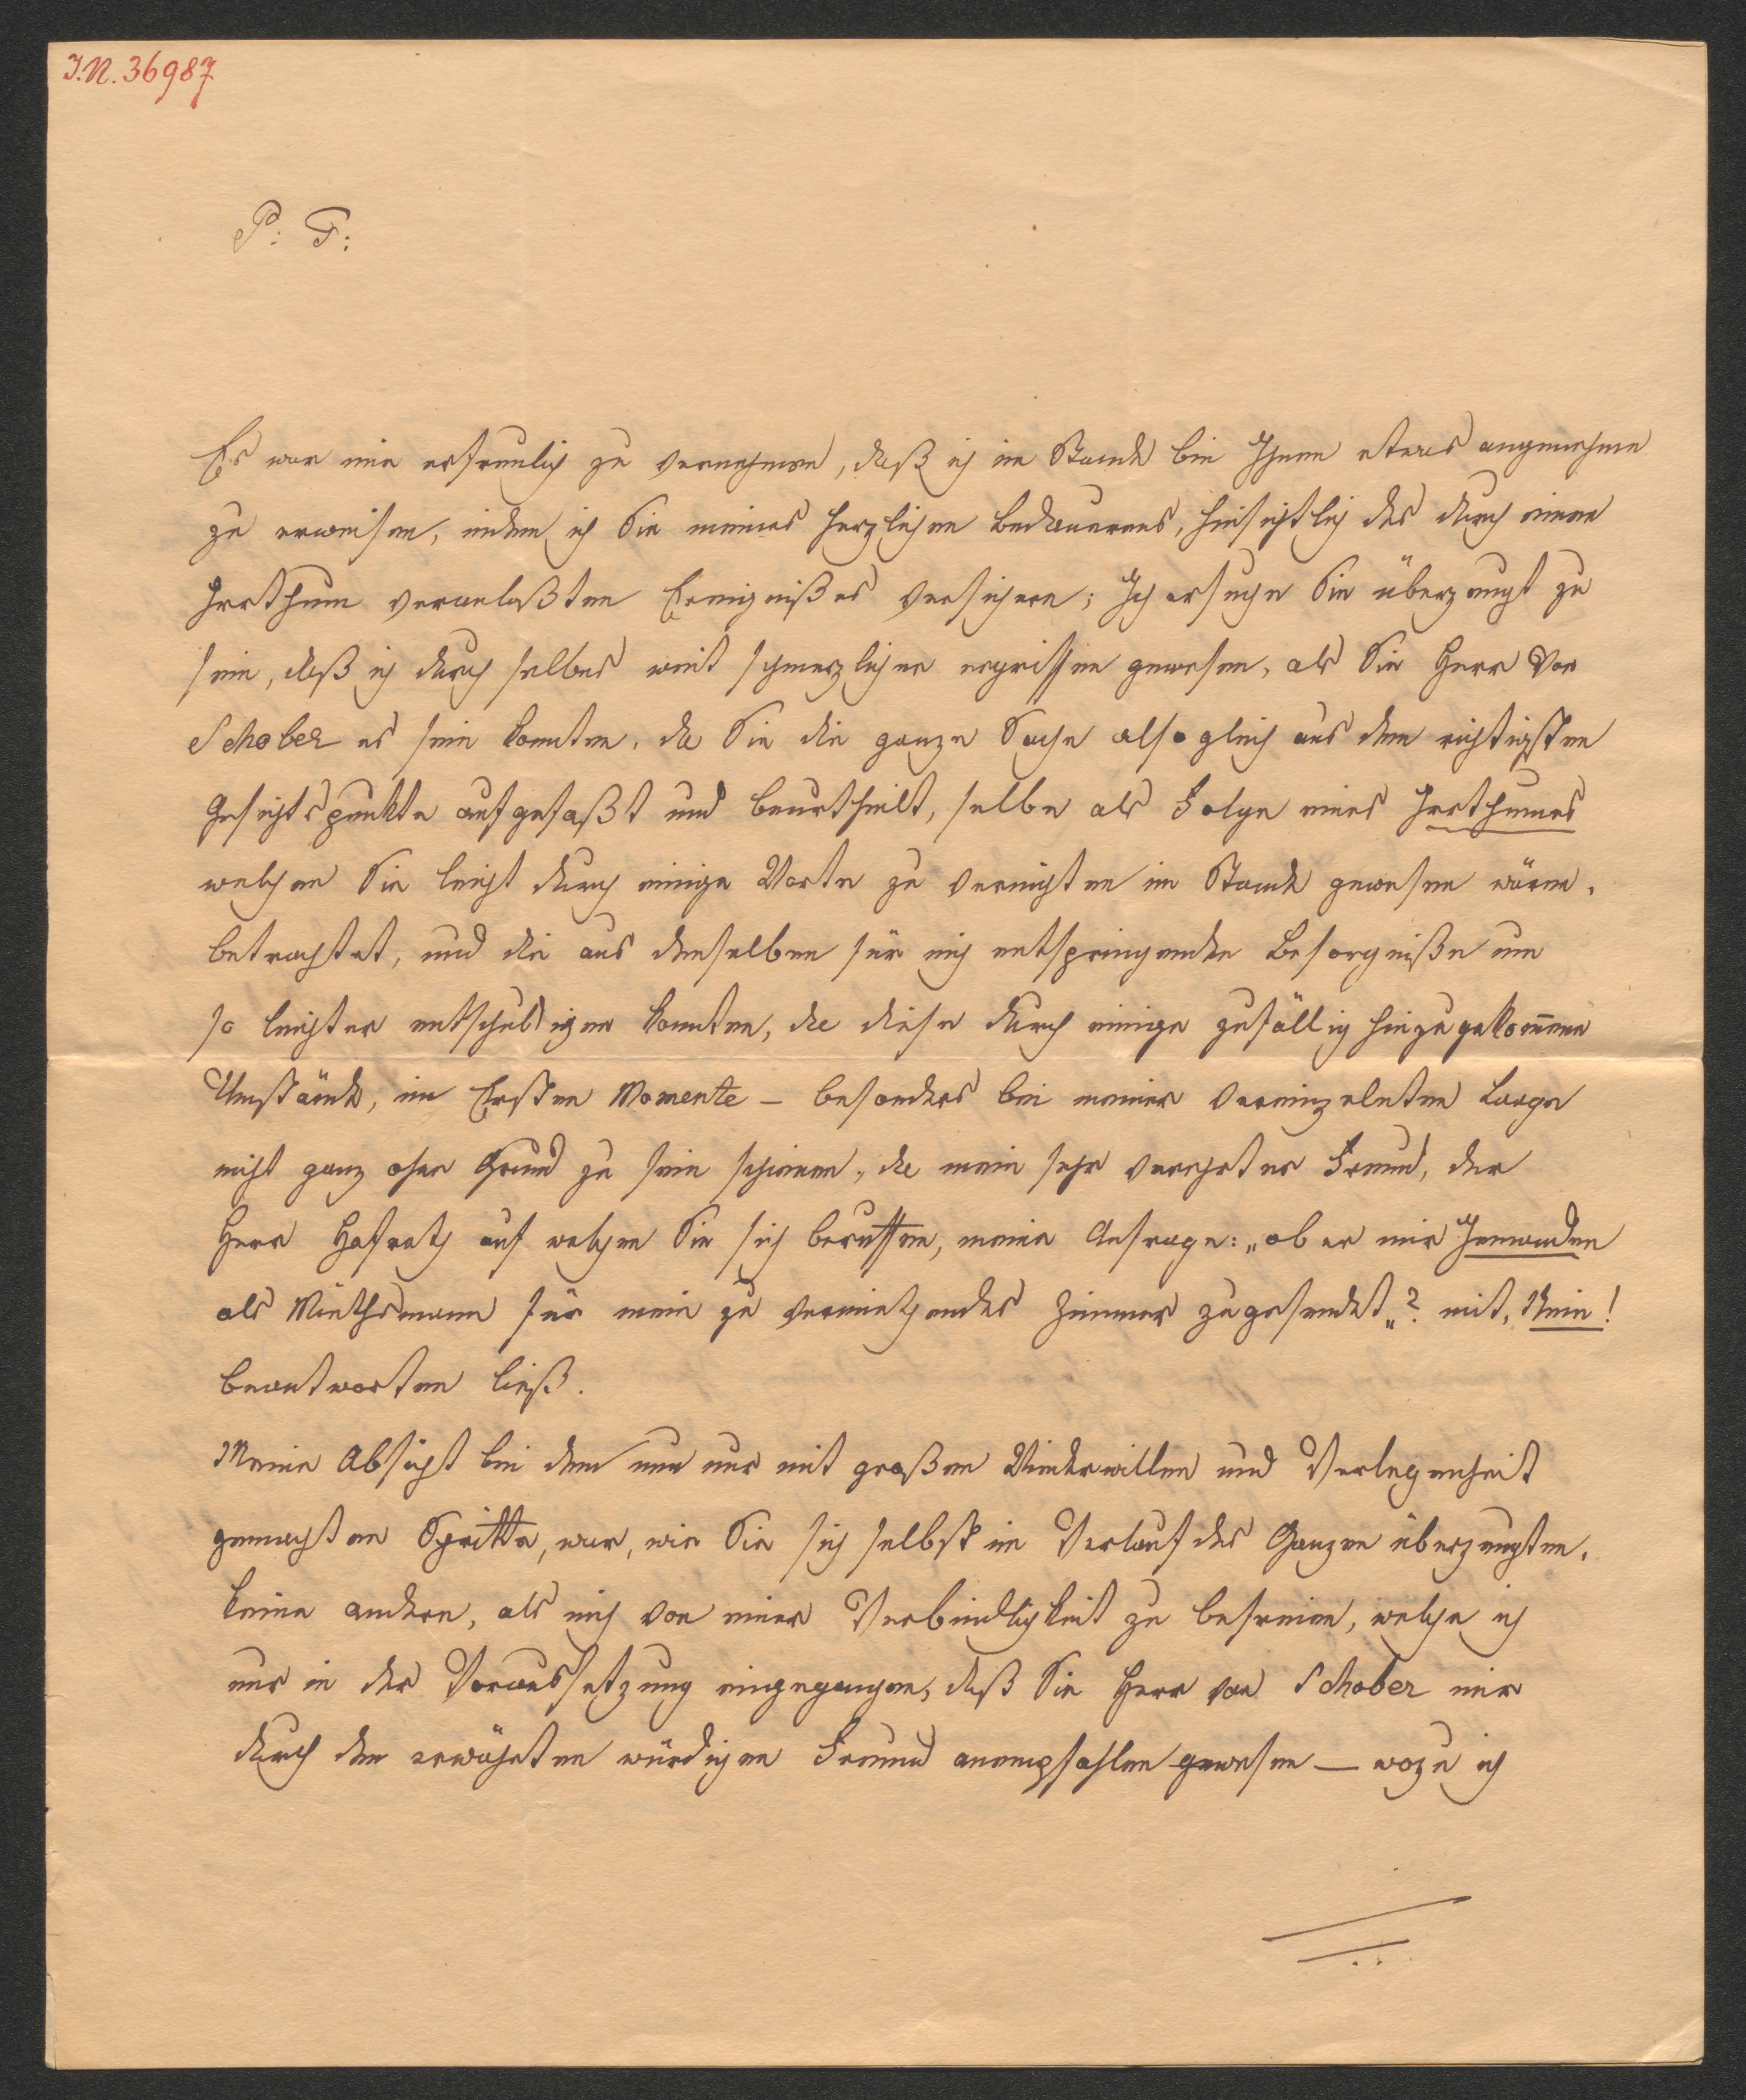 I.N. 36987
P: T:
Es war mir erfreulich zu vernehmen, daß ich im Stande bin Ihnen etwas angenehmes
zu erweisen, indem ich Sie meines herzlichen Bedauerens, hinsichtlich des durch einen
Irrthum veranlaßten Ereignißes versichere; Ich ersuche Sie überzeugt zu
sein, daß ich durch selbes weit schmerzlicher ergriffen gewesen, als Sie Herr von
Schober es sein konnten, da Sie die ganze Sache alsogleich aus dem richtigsten
Gesichtspunkte aufgefaßt und beurtheilt, selbe als Folge eines Irrthumes
welchen Sie leicht durch einige Worte zu vernichten im Stande gewesen wären,
betrachtet, und die aus demselben für mich entspringenden Besorgniße um
so leichter entschuldigen konnten, da diese durch einige zufällig hinzugekom̄ene
Umstände, im Ersten Momente – besonders bei meiner vereinzelnten Laage
nicht ganz ohne Grund zu sein schienen, da mein sehr verehrter Freund, der
Herr Hofrath auf welchen Sie sich beruffen, meine Anfrage: „ob er mir Jemanden
als Miethsmann für mein zu vermiethendes Zimmer zugesendet„? mit, Nein!
beantworten ließ.
Meine Absicht bei dem nun nur mit großen Wiederwillen und Verlegenheit
gemachten Schritte, war, wie Sie sich selbst im Verlauf des Ganzen überzeugten,
keine andere, als mich von einer Verbindlichkeit zu befreien, welche ich
nur in der Voraussetzung eingegangen, daß Sie Herr von Schober mir
durch den erwähnten würdigen Freund anempfohlen gewesen — wozu ich